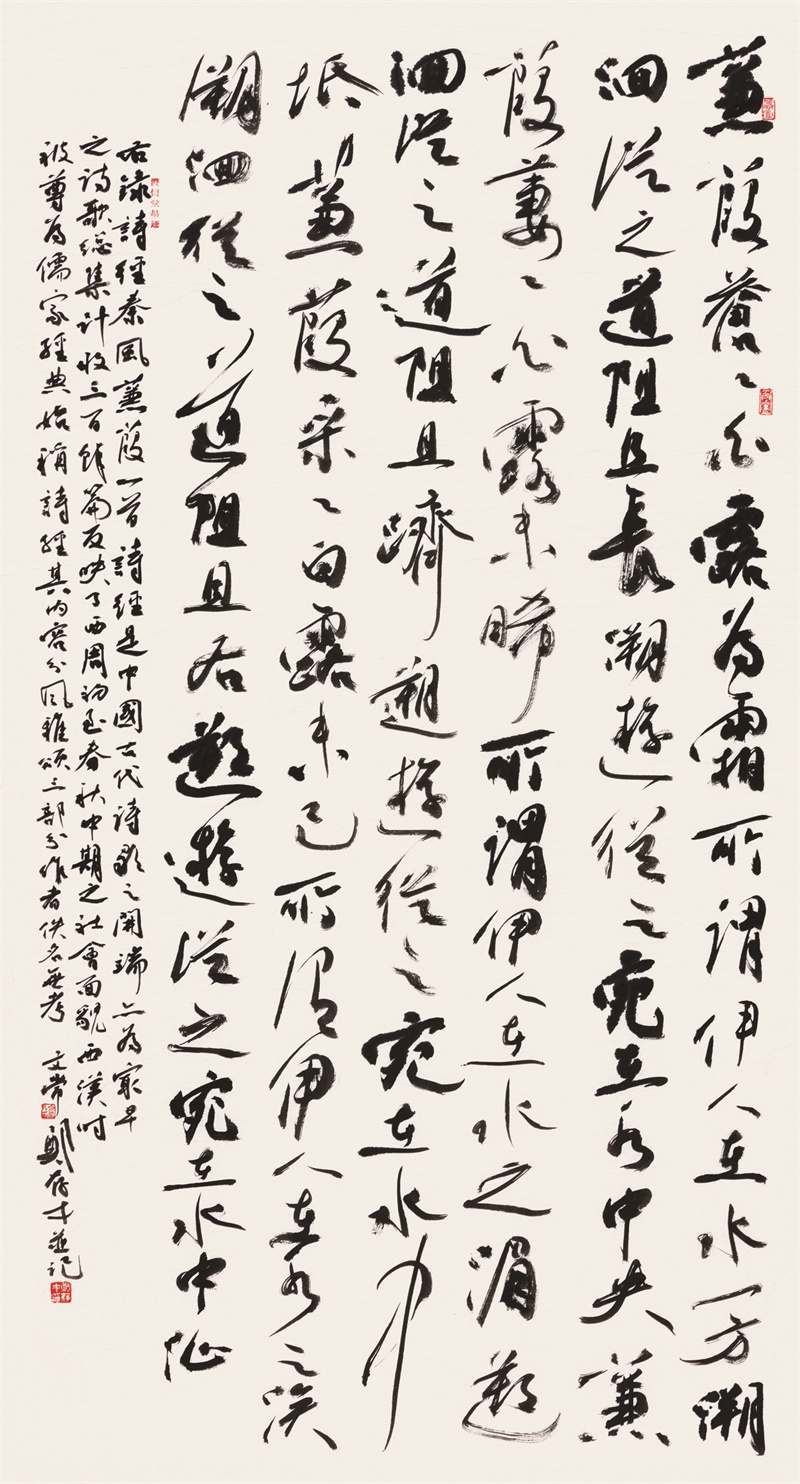 蒹葭蒼〻白露為霜所謂伊人在水一方溯
洄從之道阻且長溯游從之宛在水中央蒹
葭萋〻白露未晞所謂伊人在水之湄遡
洄從之道阻且躋遡游從之宛在水中
坻蒹葭采〻白露未已所謂伊人在水之涘
溯洄從之道阻且右遡游從之宛在水中沚
右錄詩經秦風蒹葭一首詩經是中國古代詩歌之開端亦為最早
之詩歌總集計收三百餘篇反映了西周初至春秋中期之社會面貌西漢時
被尊為儒家經典始稱詩經其內容分風雅頌三部分作者佚名無考 文常 鄭 才並記